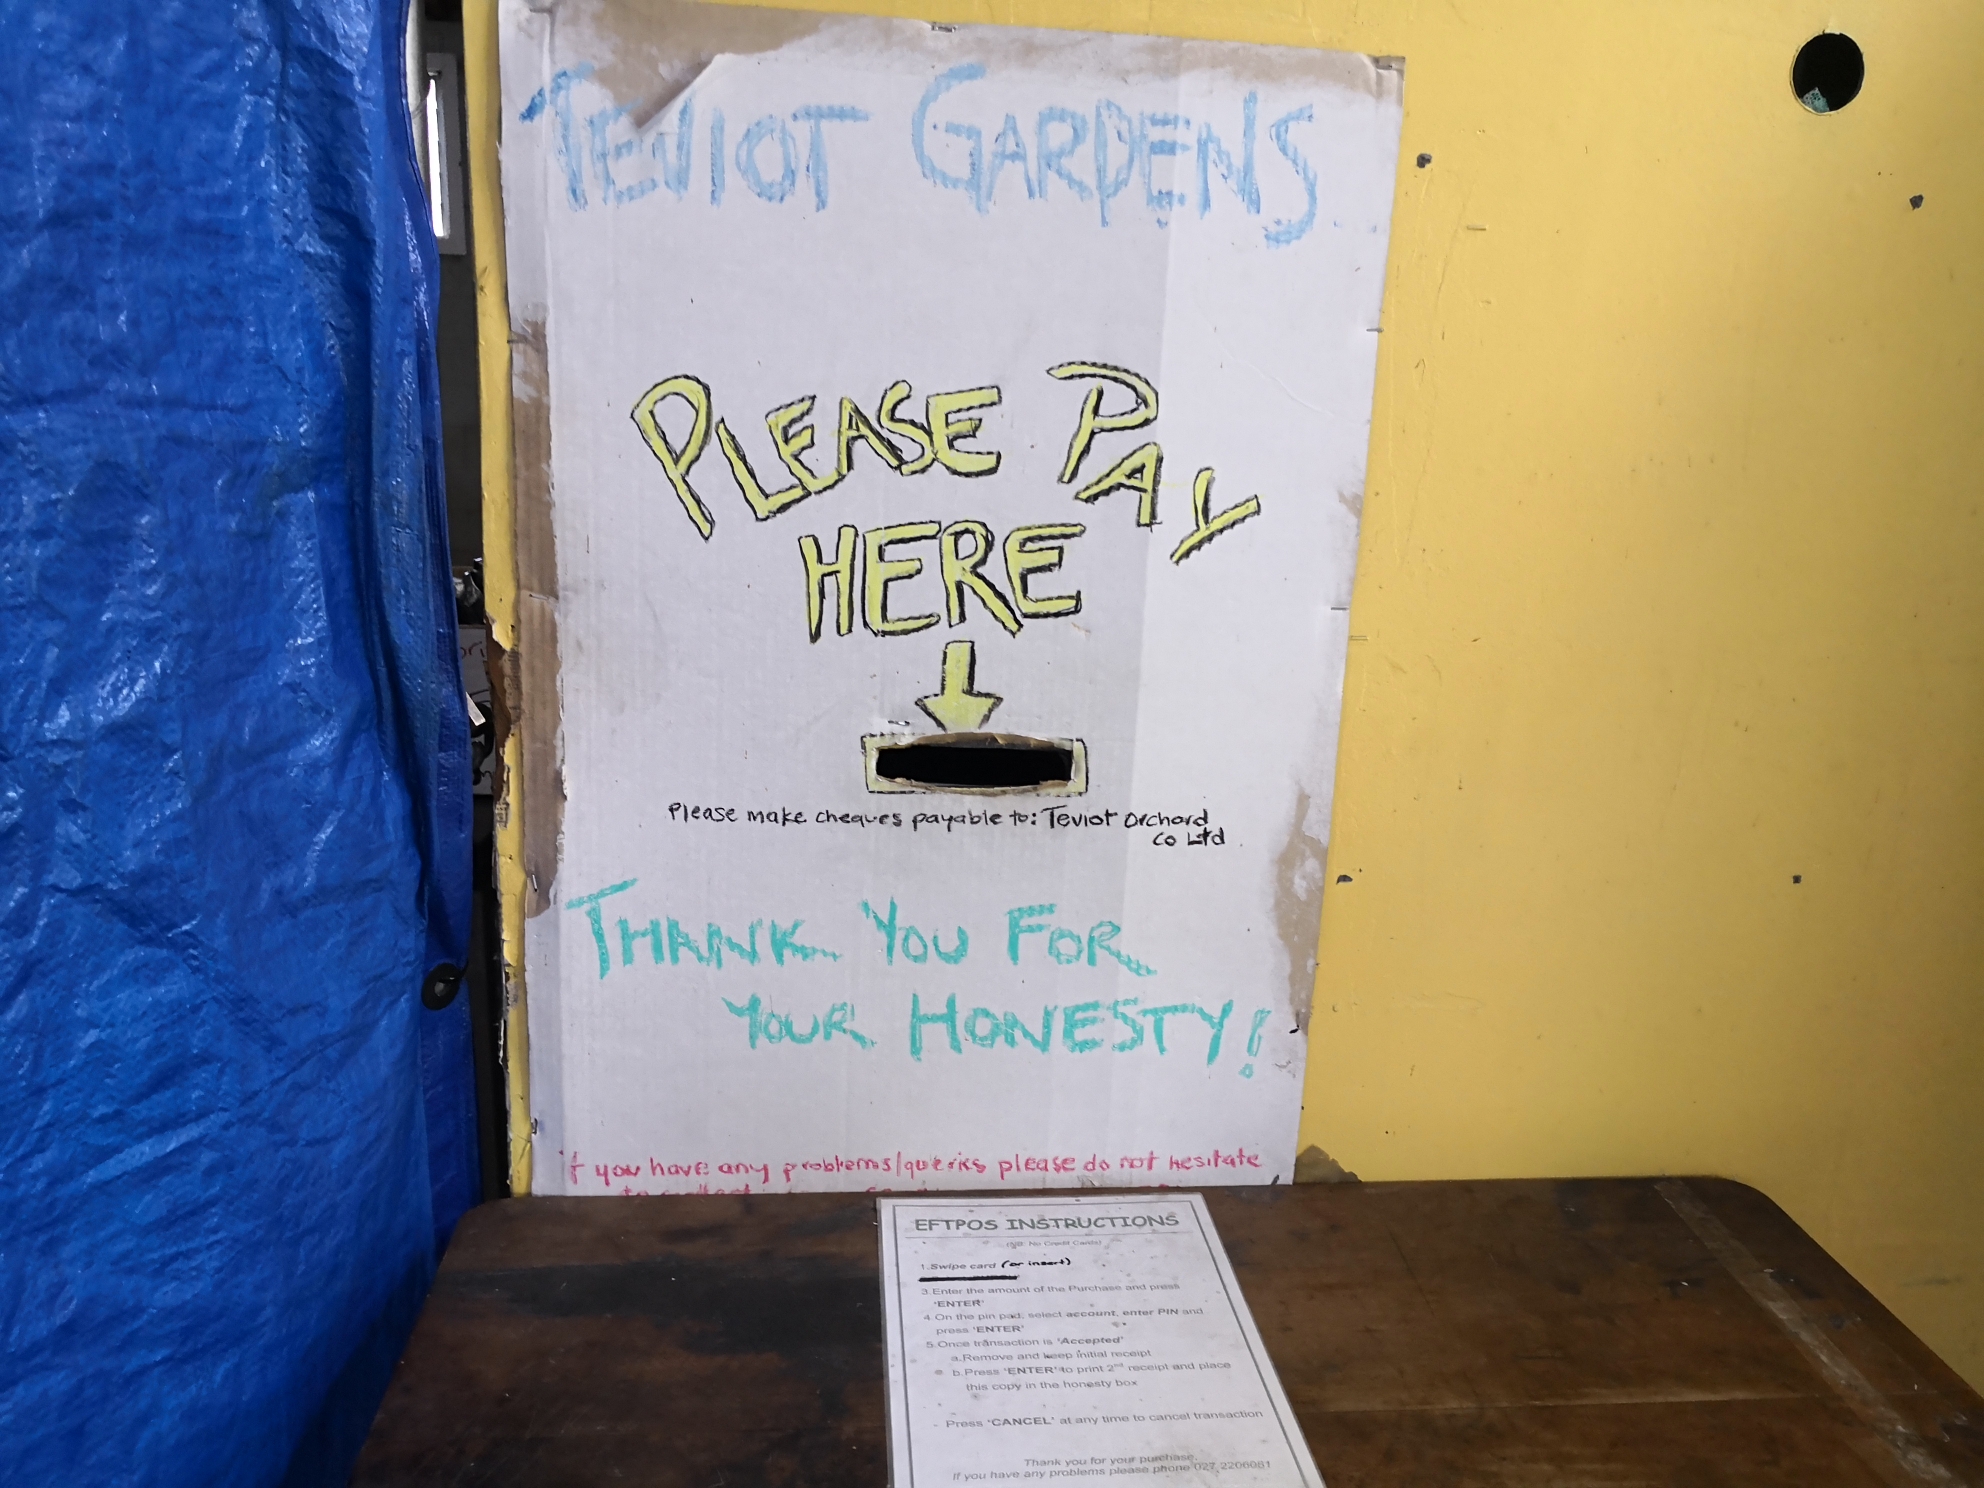 TEVIOT GARDENS
PLEASE PAY
HERE
Please make cheques payable to: Teviot Orchard
Co Ltd
THANK YOU FOR
YOUR HONESTY!
If you have any problems/queries please do not hesitate
to contact
EFTPOS INSTRUCTIONS
(NB: No Credit Cards)
1.Swipe card (or insert)
3.Enter the amount of the Purchase and press
'ENTER'
4.On the pin pad, select account, enter PIN and
press 'ENTER'
5.Once transaction is 'Accepted'
a.Remove and keep initial receipt
b.Press 'ENTER' to print 2nd receipt and place
this copy in the honesty box
- Press 'CANCEL' at any time to cancel transaction
Thank you for your purchase.
If you have any problems please phone 027 2206081